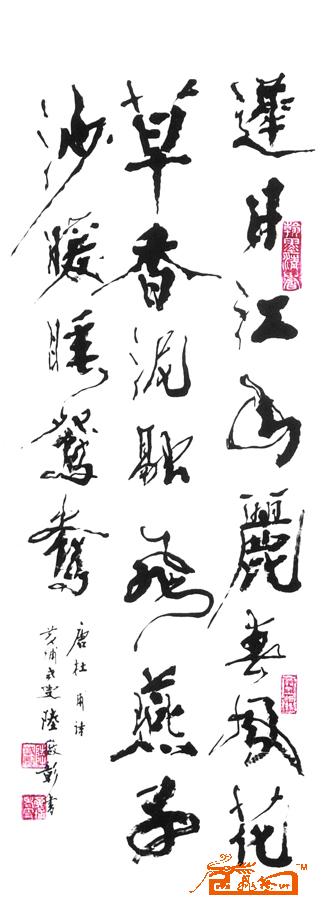 遲日江山麗春風花
草香泥融飛燕子
沙暖睡鴛鴦
唐杜甫詩
陸彭書